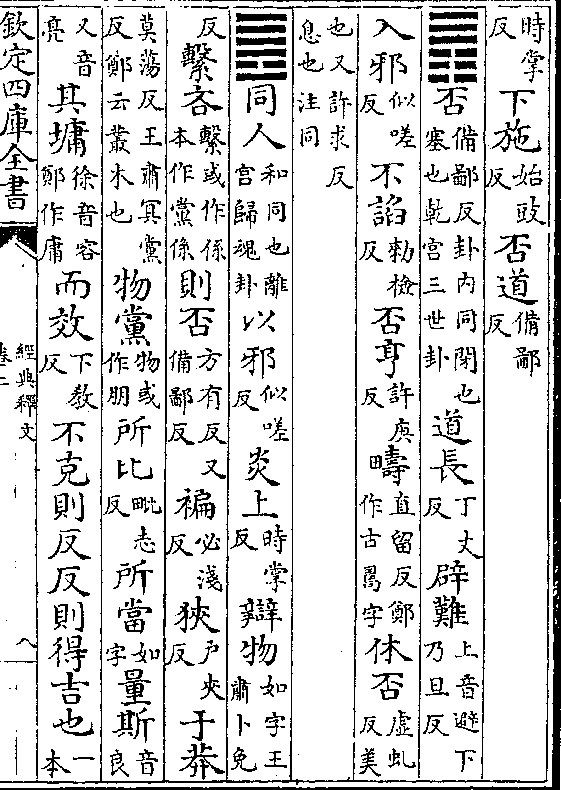 時掌反下施始豉反否道備鄙反
䷋否備鄙反卦内同閉也塞也乾宫三世卦道長丁丈反辟難上音避下乃旦反
入邪似嗟反不諂勑檢反否亨許庚反疇直留反鄭作古字休否虛虬反美
也又許求反息也注同
䷌同人和同也離宮歸魂卦以邪似嗟反炎上時掌反辯物如字王肅卜免
反繫吝繫或作係本作黨係則否方有反又備鄙反褊必淺反狹戶夾反于莽
莫蕩反王肅冥黨反鄭云叢木也物黨物或作朋所比毗志反所當如字量斯音良
又音亮其墉徐音容鄭作庸而效下教反不克則反反則得吉也一本
欽定四庫全書
經典釋文
卷二
八